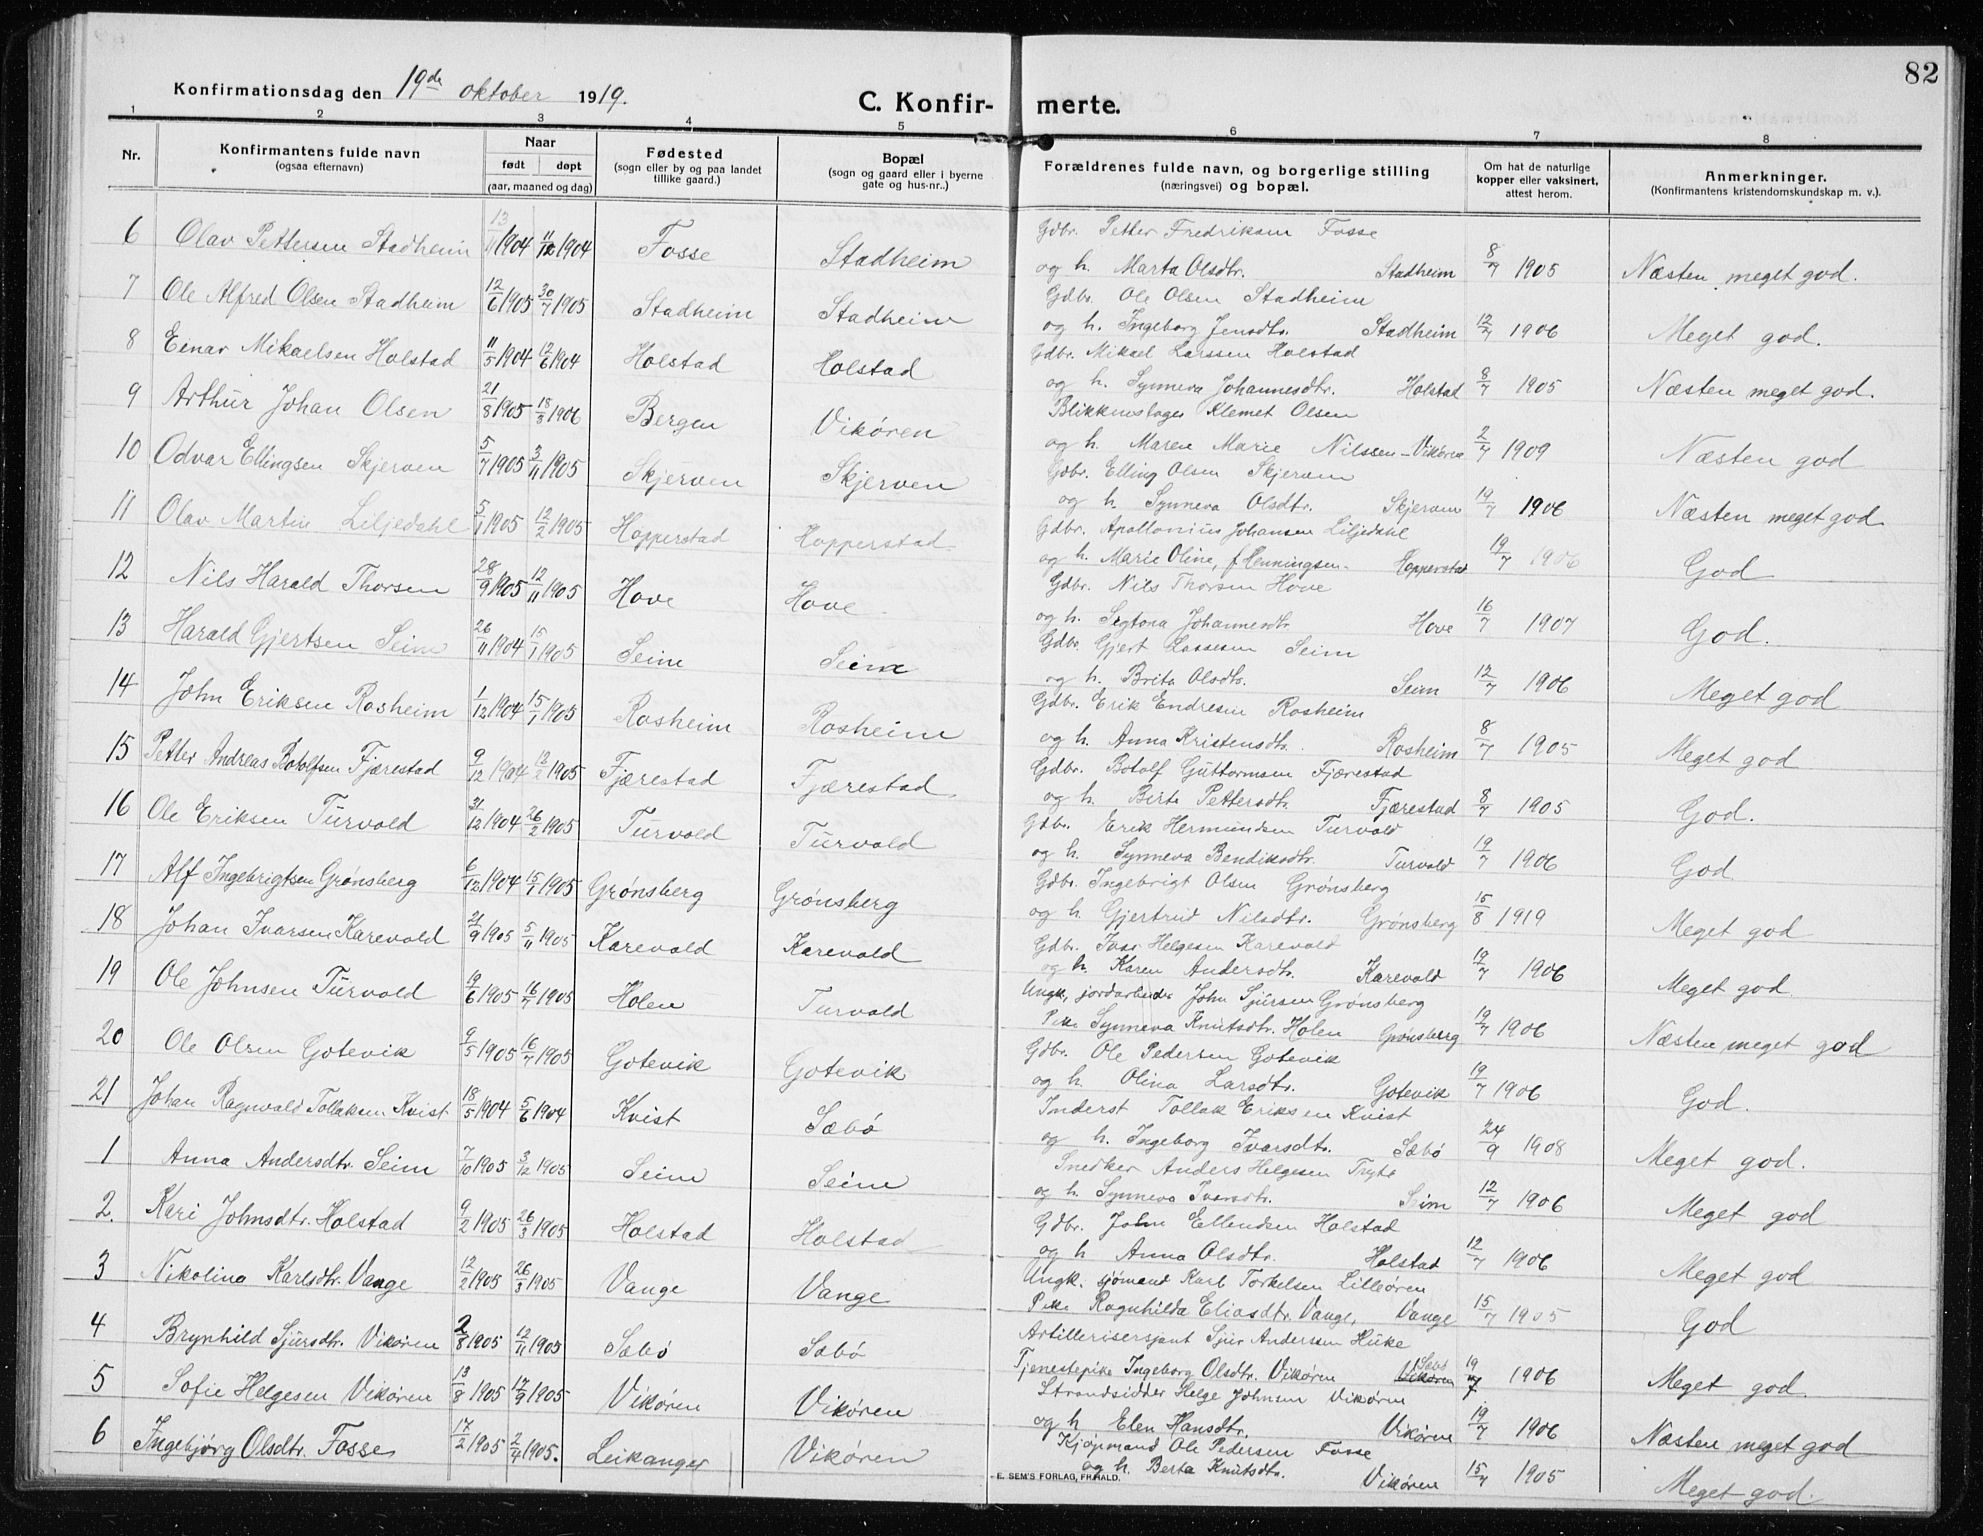 82
Konfirmationsdag den 19de oktober 1919.
C. Konfir- merte.
1 2 3 4 5 6 7 8
Nr.
Konfirmantens fulde navn
(ogsaa efternavn)
Naar
født døpt
(aar, maaned og dag)
Fødested
(sogn eller by og paa landet
tillike gaard.)
Bopæl
(sogn og gaard eller i byerne
gate og hus-nr..)
Forældrenes fulde navn, og borgerlige stilling
(næringsvei) og bopæl.
Om hat de naturlige
kopper eller vaksinert,
attest herom.
Anmerkninger.
(Konfirmantens kristendomskundskap m. v.).
Gdbr. Petter Fredriksen Fosse
6 Olav Pettersen Stadheim 13/11 1904 11/12 1904 Fosse Stadheim og h. Marta Olsdtr. Stadheim 8/7 1905 Næsten meget god.
Gdbr. Ole Olsen Stadheim
7 Ole Alfred Olsen Stadheim 12/6 1905 30/7 1905 Stadheim Stadheim og h. Ingeborg Jensdtr. Stadheim 12/7 1906 Meget god.
Gdbr. Mikael Larssen Holstad
8 Einar Mikaelsen Holstad 11/5 1904 12/6 1904 Holstad Holstad og h. Synneva Johannesdtr. Holstad 8/7 1905 Næsten meget god.
Blikkenslager Klemet Olsen
9 Arthur Johan Olsen 21/8 1905 18/3 1906 Bergen Vikøren og h. Maren Marie Nilssen - Vikøren 2/4 1909 Næsten god
Gdbr. Elling Olsen Skjerven
10 Odvar Ellingsen Skjerven 5/7 1905 3/11 1905 Skjerven Skjerven og h. Synneva Olsdtr. Skjerven 19/7 1906 Næsten meget god.
Gdbr. Apollonius Johansen Liljedahl
11 Olav Martin Liljedahl 5/1 1905 12/2 1905 Hopperstad Hopperstad og h. Marie Oline, f. Henningsen. Hopperstad 19/7 1906 God
Gdbr. Nils Thorsen Hove
12 Nils Harald Thorsen 28/9 1905 12/11 1905 Hove Hove og h. Johannesdtr. Hove 16/7 1907 God.
Gdbr. Gjert Lassesen Seim
13 Harald Gjertsen Seim 26/11 1904 15/1 1905 Seim Seim og h. Brita Olsdtr. Seim 12/7 1906 Meget god
Gdbr. Erik Endresen Rosheim
14 John Eriksen Rosheim 1/12 1904 15/1 1905 Rosheim Rosheim og h. Anna Kristensdtr. Rosheim 8/7 1905 Meget god
Gdbr. Botolf Guttormsen Fjærestad
15 Petter Andreas Botolfsen Fjærestad 9/12 1904 12/2 1905 Fjærestad Fjærestad og h. Birte Pettersdtr. Fjærestad 8/7 1905 God.
Gdbr. Erik Hermundsen Turvold
16 Ole Eriksen Turvold 31/12 1904 26/2 1905 Turvold Turvold og h. Synneva Bendiksdtr. Turvold 19/7 1906 God
Gdbr. Ingebrigt Olsen Grønsberg
17 Alf Ingebrigtsen Grønsberg 6/12 1904 15/1 1905 Grønsberg Grønsberg og h. Gjertrud Nilsdtr. Grønsberg 15/8 1919 Meget god
Gdbr. Ivar Helgesen Karevold
18 Johan Ivarsen Karevold 21/9 1905 5/11 1905 Karevold Karevold og h. Karen Andersdtr. Karevold 19/7 1906 Meget god.
Ungk. jordarbeider John Sjursen Grønsberg
19 Ole Johnsen Turvold 19/6 1905 16/7 1905 Holen Turvold Pike Synneva Knutsdtr. Holen Grønsberg 19/7 1906 Næsten meget god
Gdbr. Ole Pedersen Gotevik
20 Ole Olsen Gotevik 9/5 1905 16/7 1905 Gotevik Gotevik og h. Olina Larsdtr. Gotevik 19/7 1906 God.
Inderst Tollak Eriksen Kvist
21 Johan Ragnvald Tollaksen Kvist 18/5 1904 5/6 1904 Kvist Sæbø og h. Ingeborg Ivarsdtr. Sæbø 24/9 1908 Meget god.
Snedker Anders Helgesen Tryte
1 Anna Andersdtr. Seim 7/10 1905 3/12 1905 Seim Seim og h. Synneva Ivarsdtr. Seim 12/7 1906 Meget god
Gdbr. John Ellendsen Holstad
2. Kari Johnsdtr. Holstad 9/2 1905 26/3 1905 Holstad Holstad og h Anna Olsdtr. Holstad 12/7 1906 Meget god
Ungk. sjømand Karl Torkelsen Lilleøren
3 Nikolina Karlsdtr. Vange 12/2 1905 26/3 1905 Vange Vange Pike Ragnhilda Eliasdtr. Vange, Vange 15/7 1905 God
Artillerisersjant Sjur Anderssen Huke
4 Brynhild Sjursdtr. Vikøren 2/8 1905 12/11 1905 Sæbø Sæbø Tjenestepike Ingeborg Olsdtr. Vikøren Vikøren Sæbø 19/7 1906 Meget god.
Strandsidder Helge Johnsen Vikøren
5 Sofie Helgesen Vikøren 13/8 1905 17/9 1905 Vikøren Vikøren og h Elen Hansdtr. Vikøren 19/7 1906 Næsten meget god
Kjøpmand Ole Pedersen Fosse
6 Ingebjørg Olsdtr. Fosse 17/2 1905 2/4 1905. Leikanger Vikøren og h. Berta Knutsdtr. Vikøren 15/7 1905 Meget god.
E. SEM'S FORLAG, FR.HALD.